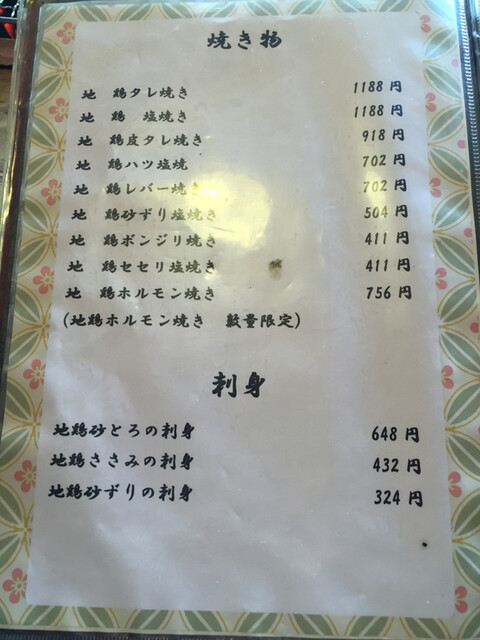 焼き物
地　鶏タレ焼き　1188 円
地　鶏　塩焼き　1188 円
地　鶏皮タレ焼き　918 円
地　鶏ハツ塩焼　702 円
地　鶏レバー焼き　702 円
地　鶏砂ずり塩焼き　504 円
地　鶏ボンジリ焼き　411 円
地　鶏セセリ塩焼き　411 円
地　鶏ホルモン焼き　756 円
(地鶏ホルモン焼き　数量限定)
刺身
地鶏砂とろの刺身　648 円
地鶏ささみの刺身　432 円
地鶏砂ずりの刺身　324 円